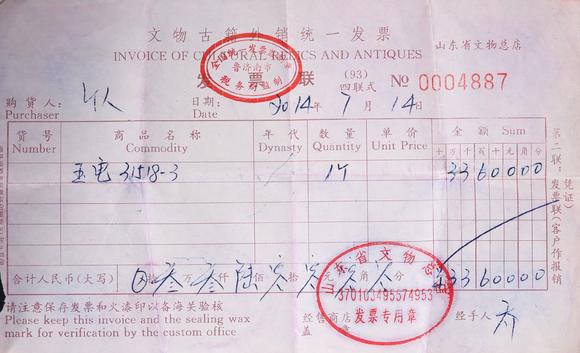 文物古籍外销统一发票
INVOICE OF CULTURAL RELICS AND ANTIQUES
山东省文物总店
全国统一发票监制章
鲁济南市
税务局监制
发票联
(93)
四联式
№ 0004887
购货人:
Purchaser
日期: 2014年7月14日
Date
货号 商品名称 年代 数量 单价 金额 Sum
Number Commodity Dynasty Quantity Unit Price 十万千百十元角分
31518-3 3360000
合计人民币(大写) 拾 万 仟 佰 拾 元 角 分 3360000
叁叁陆
山东省文物总店
370103495574953
发票专用章
请注意保存发票和火漆印以备海关验核
Please keep this invoice and the sealing wax
mark for verification by the custom office
经售商店
盖章
经手人
第二联:发票联(客户作报销凭证)